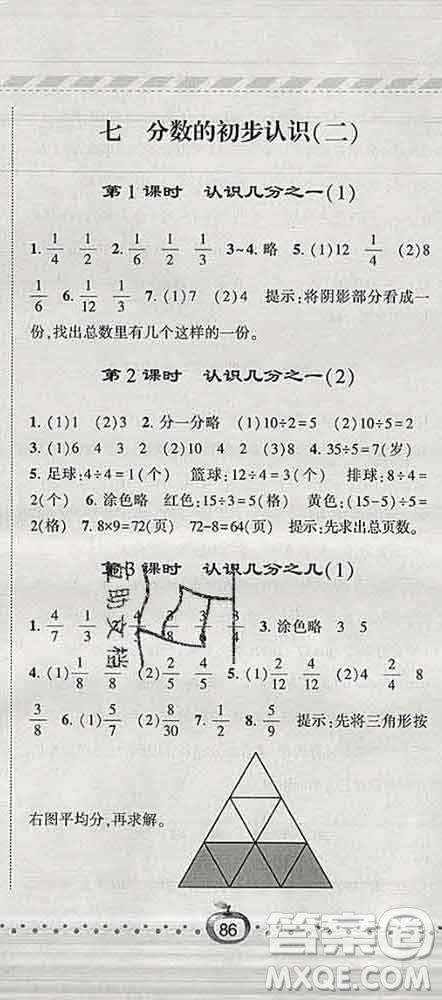 七 分数的初步认识(二)
第1课时 认识几分之一(1)
1. 1/4 1/2 2. 1/6 1/2 1/3 3~4.略 5.(1)12 1/4 (2)8
1/6 6. 1/12 1/3 7.(1)7 (2)4 提示:将阴影部分看成一
份,找出总数里有几个这样的一份。
第2课时 认识几分之一(2)
1.(1)1 (2)3 2.分一分略 (1)10÷2=5 (2)10÷5=2
3.(1)6 4 3 2 (2)4 3 8 4.35÷5=7(岁)
5.足球:4÷4=1(个) 篮球:12÷4=3(个) 排球:8÷4=
2(个) 6.涂色略 红色:15÷3=5(格) 黄色:(15-5)÷5=
2(格) 7.8×9=72(页) 72-8=64(页) 提示:先求出总页数。
第3课时 认识几分之几(1)
1. 4/7 1/3 3.涂色略 3 5
4.(1) 1/8 7/8 (2) 2/5 4/5 5.(1) 4/12 7/12 (2)4 2/4 8
3/8 6.(1) 2/5 (2) 8/30 7. 1/2 8. 5/9 提示:先将三角形按
右图平均分,再求解。
86
互助文档
答案圈
MXQE.COM